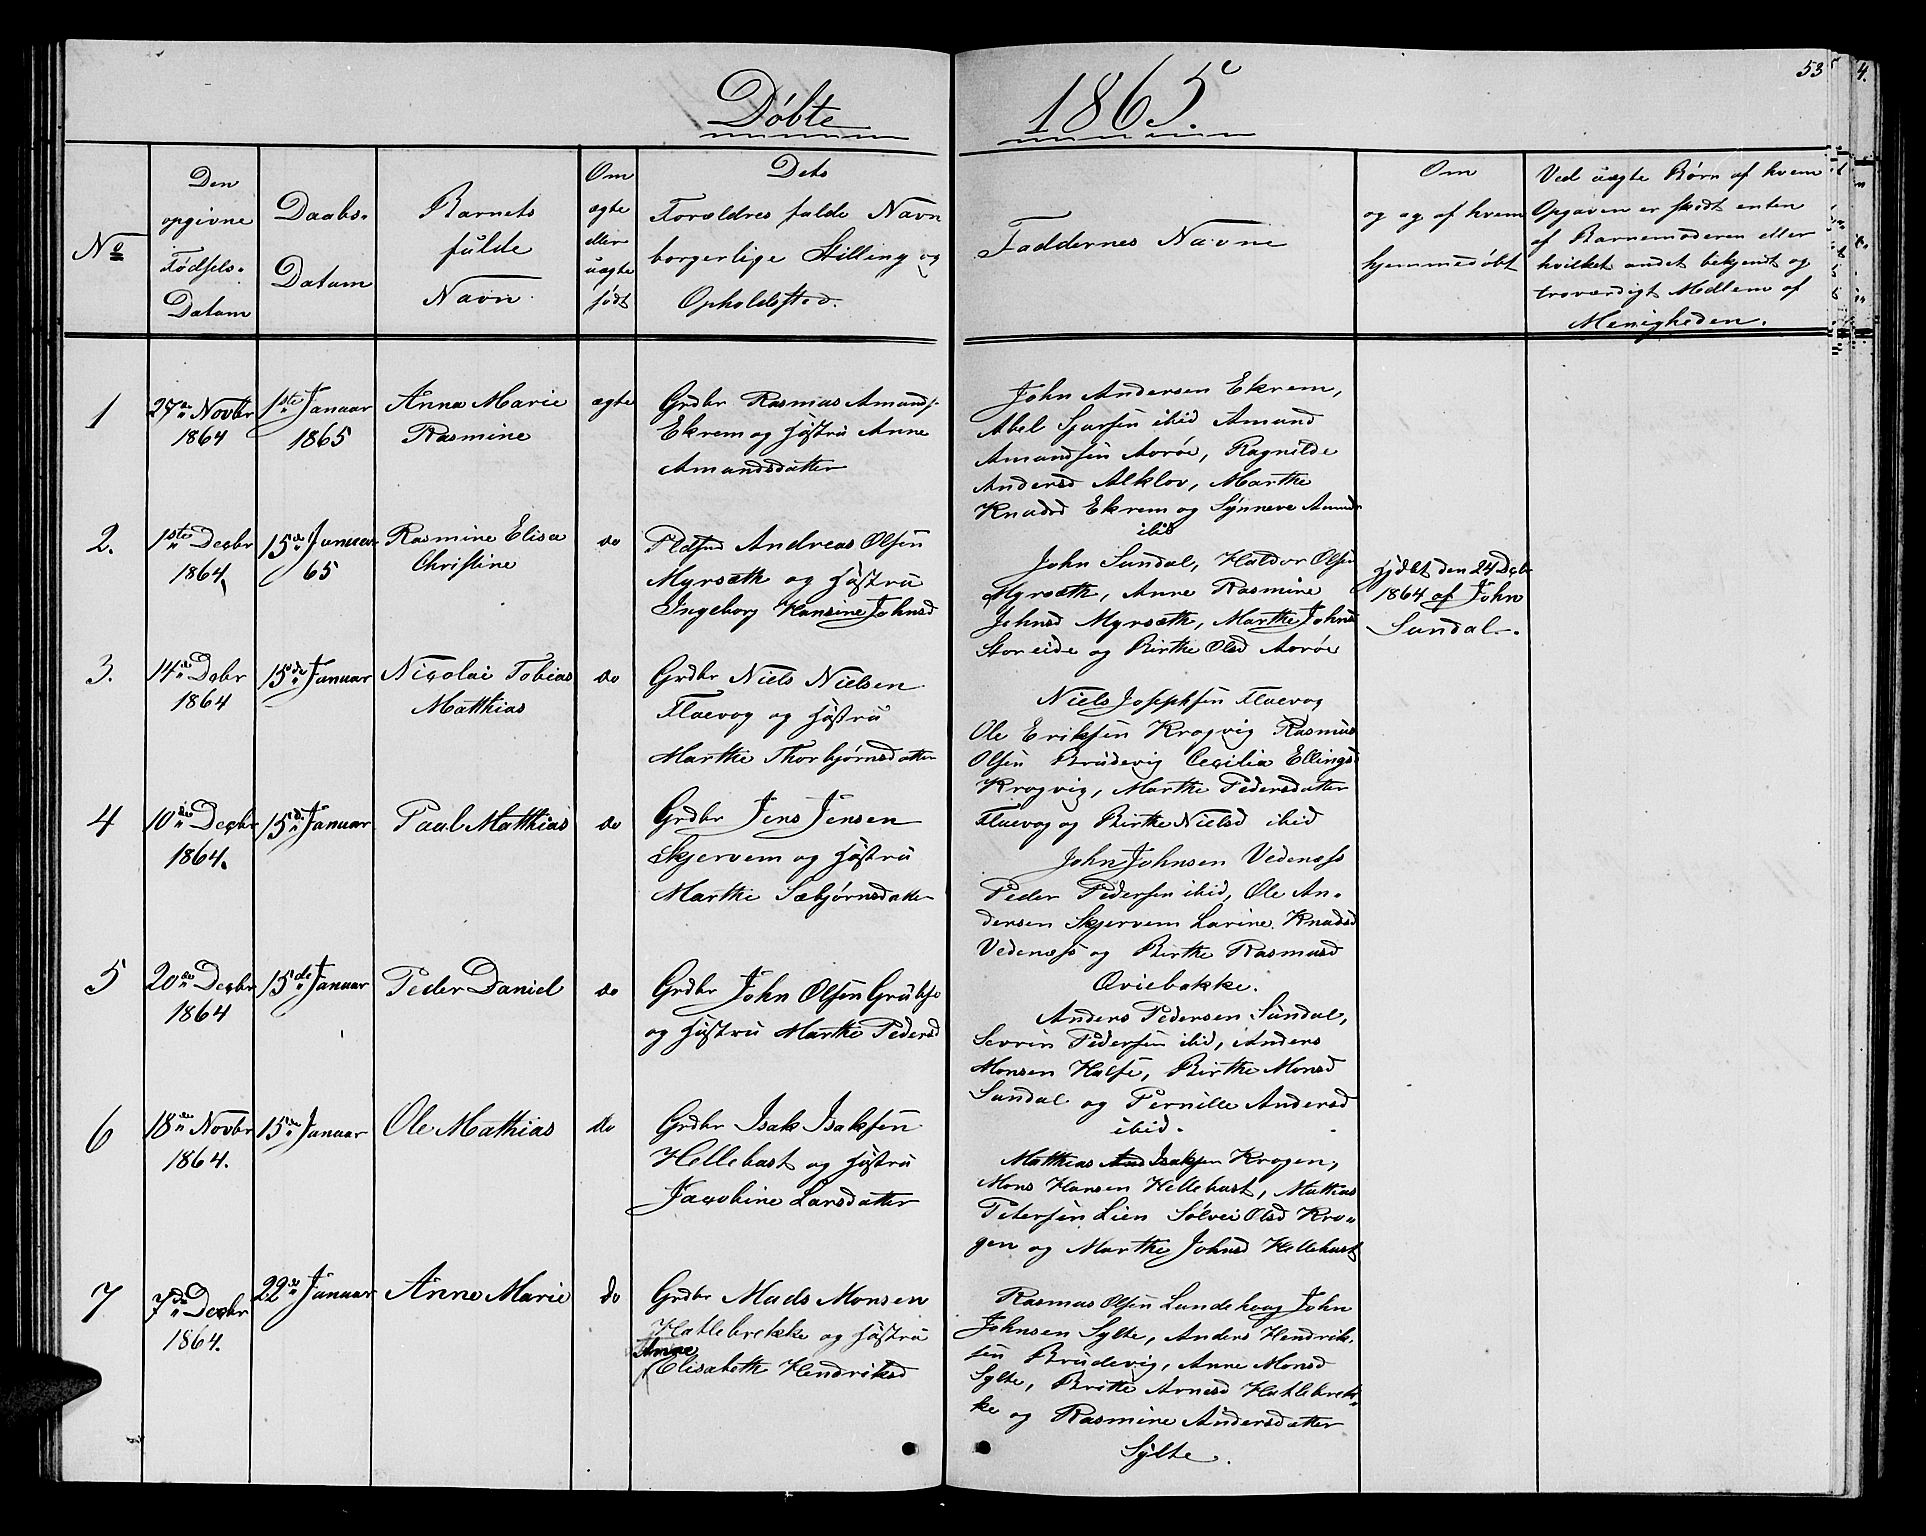 Döbte 1865.
53
4.
No
Den
opgivne
Födsels-
Datum
Daabs-
Datum
Barnets
fulde
Navn.
Om
ægte
eller
uægte
født
Dets
Forældres fulde Navn
borgerlige Stilling og
Opholdssted.
Faddernes Navne
Om
og og af hvem
hjemmedöbt
Ved uægte Börn af hvem
Opgaven er skedt enten
af Barnemoderen eller
hvilket andet bekjendt og
troværdigt Medlem af
Menigheden.
1
27de Novbr
1864
1ste Januar
1865
Anna Marie
Rasmine
ægte
Grdbr Rasmus Amunds.
Ekrem og Hustru Anne
Amundsdatter
John Andersen Ekrem,
Abel Sjursen ibid Amund
Amundsen Aaröe, Ragnilde
Andersd Alklov, Marthe
Knudsd Ekrem og Synneve Amunds
ibid
2.
1ste Decbr
1864
15de Januar
65
Rasmine Elisa
Christine
do
Pldsmd Andreas Olsen
Myrsæth og Hustru
Ingeborg Hansine Johnsd
John Sundal, Haldor Olsen
Myrsæth, Anne Rasmine
Johnsd Myrsæth, Marthe Johnsd
Storeide og Birthe Olsd Aaröe
Hjdbt den 24 Decbr
1864 af John
Sundal.
3.
14de Decbr
1864
15de Januar
Nicolai Tobias
Matthias
do
Grdbr Niels Nielsen
Flaevog og Hustru
Marthe Thorbjørnsdatter
Niels Josephsen Flaevog
Ole Eriksen Krogvig Rasmus
Olsen Brudevig Cecilia Ellingsd
Krogvig, Marthe Pedersdatter
Flaevog og Birthe Nielsd ibid
4
10de Decbr
1864.
15de Januar
Paul Matthias
do
Grdbr Jens Jensen
Skjervem og Hustru
Marthe Sæbjørnsdatter
John Johnsen Vedenæss
Peder Pedersen ibid, Ole An-
dersen Skjervem Larine Knudsd
Vedenæss og Birthe Rasmusd
Qviebakke.
5
20de Decbr
1864
15de Januar
Peder Daniel
do
Grdbr John Olsen
og Hustru Marthe Pedersd
Anders Pedersen Sundal,
Sevrin Pedersen ibid, Anders
Monsen , Birthe Monsd
Sundal og Pernille Andersd
ibid.
6
18de Novbr
1864.
15de Januar
Ole Mathias
do
Grdbr Isak Isaksen
Hellebust og Hustru
Jacobine Larsdatter
Matthias Isaksen Krogen,
Mons Hansen Hellebust, Mathias
Petersen Lien Sölvei Olsd Kro-
gen og Marthe Johnsd Hellebust
7
7de Decbr
1864.
22de Januar
Anne Marie
do
Grdbr Mads Monsen
Hatlebrekke og Hustru
Anne
Elisabeth Hendriksd
Rasmus Olsen Lundehaug John
Johnsen Sylte, Anders Hendrik-
sen Brudevig, Anne Monsd
Sylte, Britte Arnesd Hatlebrek-
ke og Rasmine Andersdatter
Sylte.